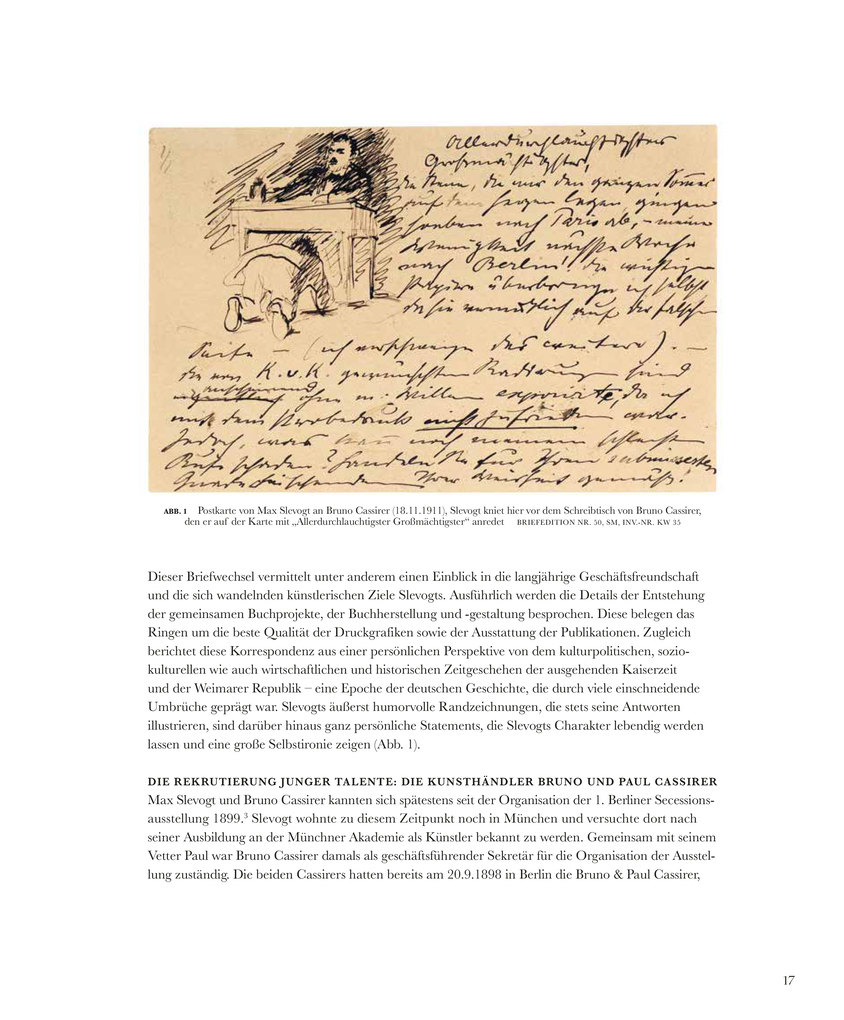 Allerdurchlauchtigster
Großmächtigster,
die mir den ganzen
auf dem legen, gingen
soeben nach Paris ab, – meine
Wenigkeit nächste Woche
nach Berlin! die wichtigen
Papiere überbringe ich selbst
da sie vermutlich auf der falschen
Seite – (ich verschweige das weitere). –
die von K. v. K. gewünschten Radirung sind
ohne m. Willen exponirte, da ich
mit dem Probedruck nicht zufrieden war.
Jedoch, was kann noch meinem schlecht
Rufe schaden? Handeln Sie für Ihren submissesten
Ihrer Weisheit gemäß!
ABB. 1 Postkarte von Max Slevogt an Bruno Cassirer (18.11.1911), Slevogt kniet hier vor dem Schreibtisch von Bruno Cassirer,
den er auf der Karte mit „Allerdurchlauchtigster Großmächtigster“ anredet BRIEFEDITION NR. 50, SM, INV.-NR. KW 35
Dieser Briefwechsel vermittelt unter anderem einen Einblick in die langjährige Geschäftsfreundschaft
und die sich wandelnden künstlerischen Ziele Slevogts. Ausführlich werden die Details der Entstehung
der gemeinsamen Buchprojekte, der Buchherstellung und -gestaltung besprochen. Diese belegen das
Ringen um die beste Qualität der Druckgrafiken sowie der Ausstattung der Publikationen. Zugleich
berichtet diese Korrespondenz aus einer persönlichen Perspektive von dem kulturpolitischen, sozio-
kulturellen wie auch wirtschaftlichen und historischen Zeitgeschehen der ausgehenden Kaiserzeit
und der Weimarer Republik – eine Epoche der deutschen Geschichte, die durch viele einschneidende
Umbrüche geprägt war. Slevogts äußerst humorvolle Randzeichnungen, die stets seine Antworten
illustrieren, sind darüber hinaus ganz persönliche Statements, die Slevogts Charakter lebendig werden
lassen und eine große Selbstironie zeigen (Abb. 1).
DIE REKRUTIERUNG JUNGER TALENTE: DIE KUNSTHÄNDLER BRUNO UND PAUL CASSIRER
Max Slevogt und Bruno Cassirer kannten sich spätestens seit der Organisation der 1. Berliner Secessions-
ausstellung 1899.³ Slevogt wohnte zu diesem Zeitpunkt noch in München und versuchte dort nach
seiner Ausbildung an der Münchner Akademie als Künstler bekannt zu werden. Gemeinsam mit seinem
Vetter Paul war Bruno Cassirer damals als geschäftsführender Sekretär für die Organisation der Ausstel-
lung zuständig. Die beiden Cassirers hatten bereits am 20.9.1898 in Berlin die Bruno & Paul Cassirer,
17